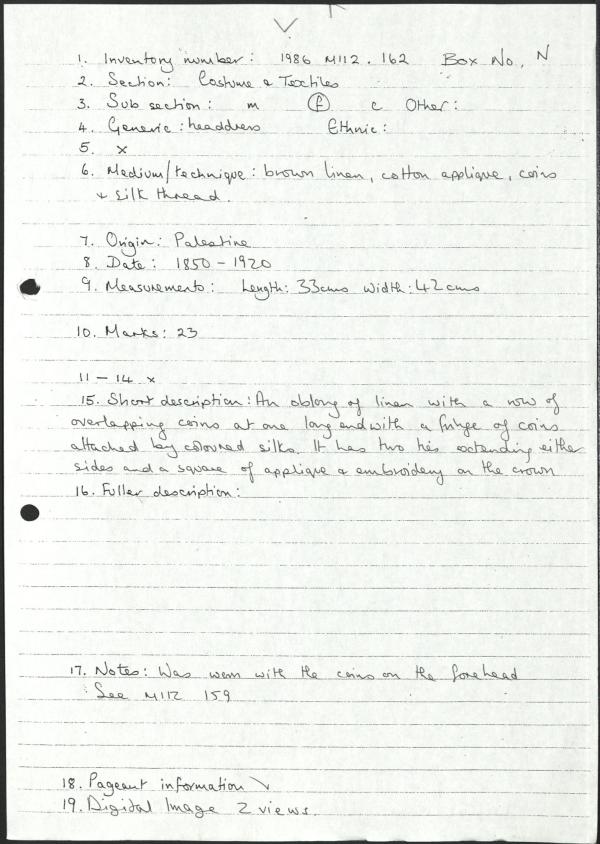 1. Inventory number: 1986 M112.162 Box No. N
2. Section: Costume & Textiles
3. Sub section: m f c Other:
4. Generic: headdress Ethnic:
5. x
6. Medium/technique: brown linen, cotton applique, coins
+ silk thread.
7. Origin: Palestine
8. Date: 1850 - 1920
9. Measurements: Length: 33cms Width: 42cms
10. Marks: 23
11 - 14 x
15. Short description: An oblong of linen with a row of
overlapping coins at one long end with a fringe of coins
attached by coloured silks. It has two ties extending either
sides and a square of applique & embroidery on the crown
16. Fuller description:
17. Notes: Was worn with the coins on the forehead
See M112 159
18. Pageant information \
19. Digital Image 2 views.